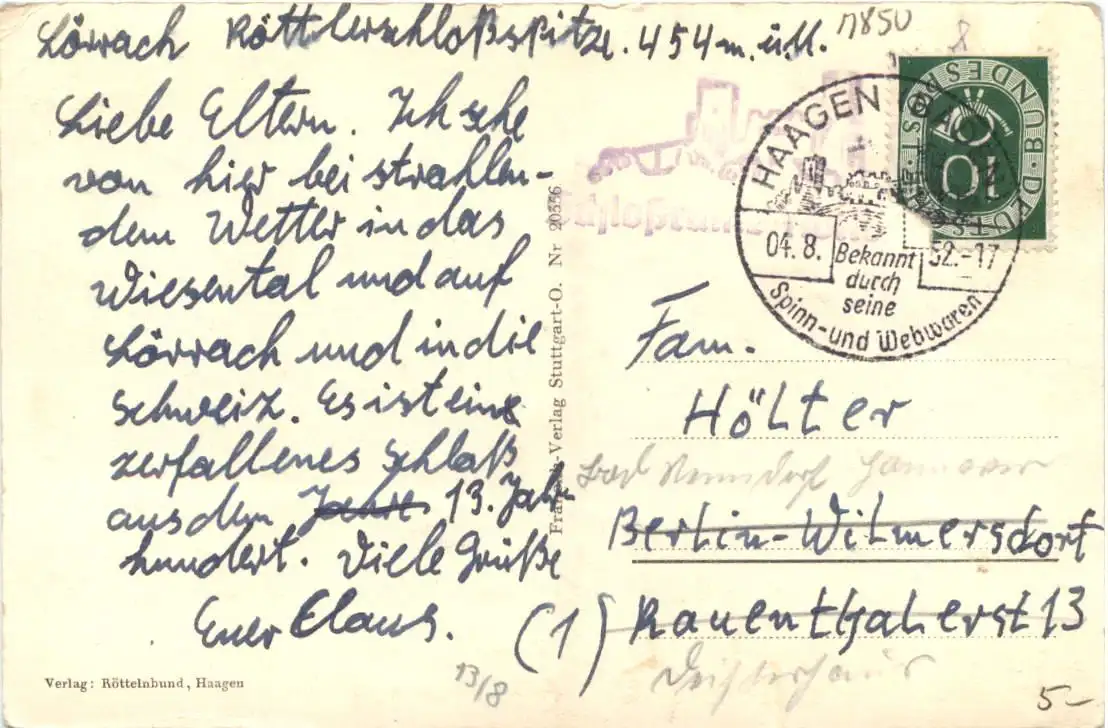 Lörrach Röttlerschloßspitze. 454m. ü.M.
Liebe Eltern. Ich sehe
von hier bei strahlen-
dem Wetter in das
Wiesental und auf
Lörrach und in die
Schweiz. Es ist ein
zerfallenes Schloß
aus dem Jahre 13. Jahr
hundert. Viele Grüße
Euer Claus.
13/8
Verlag: Röttelnbund, Haagen
Verlag Stuttgart-O. Nr 20356
DEUTSCHE BUNDESPOST
10
HAAGEN (BADEN)
04.8. 52.-17
Bekannt
durch
seine
Spinn- und Webwaren
Fam.
Hölter
Bad Nenndorf Hannover
Berlin-Wilmersdorf
(1) Rauenthalerst 13
5-